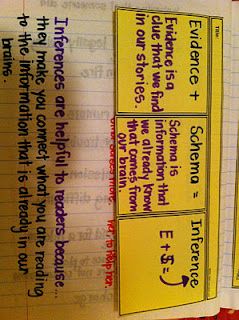 Evidence +
Evidence is a
clue that we find
in our stories.
Schema =
Schema is
information that
we already know
that comes from
our brain.
Inference
E + $ =
Inferences are helpful to readers because...
they make you connect what you are reading
to the information that is already in our
brains.